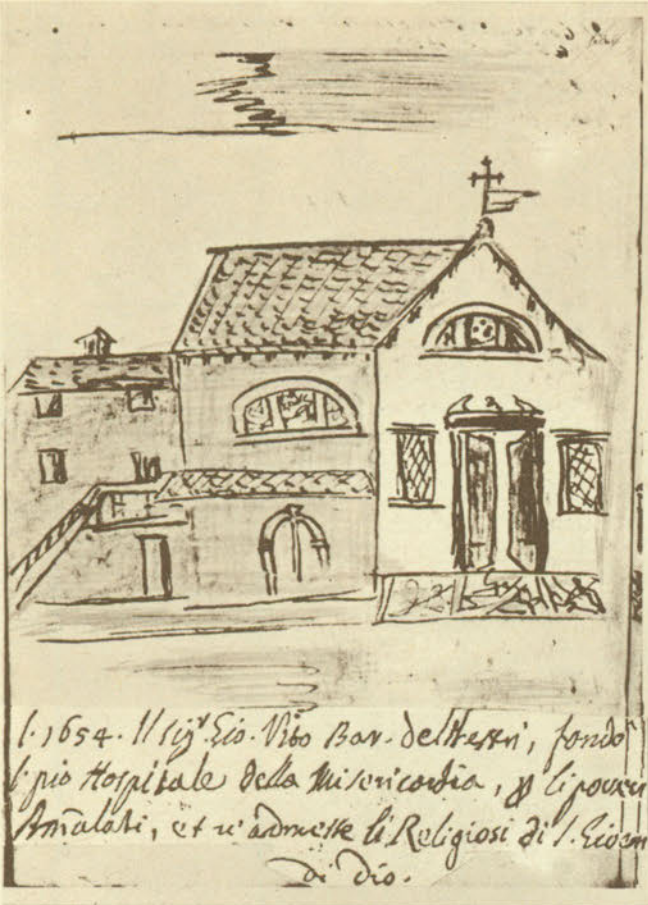 l. 1654. Il sig.r Gio. Vito Bar. del Mestri, fondò
l pio Hospitale della Misericordia, p li poveri
Amalati, et v'admesse li Religiosi di S. Gioan
di Dio.